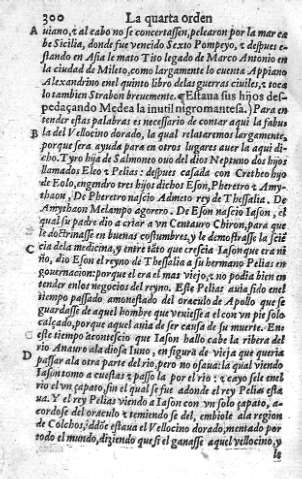 300 La quarta orden
A uiano, ꝛ al cabo no se concertassen, pelearon por la mar ca
be Sicilia, donde fue vencido Sexto Pompeyo, ꝛ despues e-
stando en Asia le mato Tito legado de Marco Antonio en
la ciudad de Mileto, como largamente lo cuenta Appiano
Alexandrino en el quinto libro de las guerras ciuiles, ꝛ toca
lo tambien Strabon breuemente. ¶ Estaua sus hijos des-
pedaçando Medea la inutil nigromantesa,) Para en
tender estas palabras es necessario de contar aqui la fabu
B la del Vellocino dorado, la qual relataremos largamente,
porque sera ayuda para en otros lugares auer la aqui di-
cho. Tyro hija de Salmoneo vuo del dios Neptuno dos hijos
llamados Eleo ꝛ Pelias: despues casada con Cretheo hijo
de Eolo, engendro tres hijos dichos Eson, Pheretro ꝛ Amy-
thaon, De Pheretro nascio Admeto rey de Thessalia. De
Amythaon Melampo agorero. De Eson nascio Iason, el
qual su padre dio a criar a vn Centauro Chiron, para que
le doctrinasse en buenas costumbres, y le demostrasse la sciē
C cia dela medicina, y entre tāto que crescia Iason que era ni
ño, dio Eson el reyno de Thessalia a su hermano Pelias en
gouernacion: porque el era el mas viejo, ꝛ no podia bien en
tender enlos negocios del reyno. Este Pelias auia sido enel
tiempo passado amonestado del oraculo de Apollo que se
guardasse de aquel hombre que veniesse a el con vn pie solo
calçado, porque aquel auia de ser causa de su muerte. Eneste
tiempo acontescio que Iason hallo cabe la ribera del
rio Anauro ala diosa Iuno, en figura de vieja que queria
D passar ala otra parte del rio, pero no osaua: la qual viendo
Iason tomo a cuestas ꝛ passo la por el rio: ꝛ cayo sele enel
rio el vn çapato, sin el qual se fue adonde el rey Pelias esta
ua. Y el rey Pelias viendo a Iason con vn solo çapato, a-
cordose del oraculo ꝛ temiendo se del, embiole ala region
de Colchos, ddōe estaua el Vellocino dorado, mentado por
todo el mundo, diziendo que si el ganasse aquel vellocino, y
le